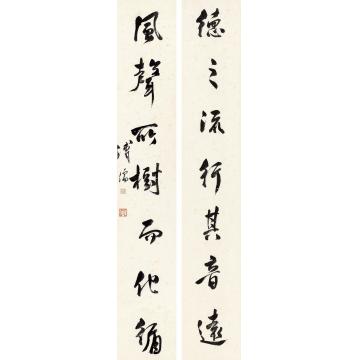 德之流行其音遠
風聲所樹而化循
溥儒